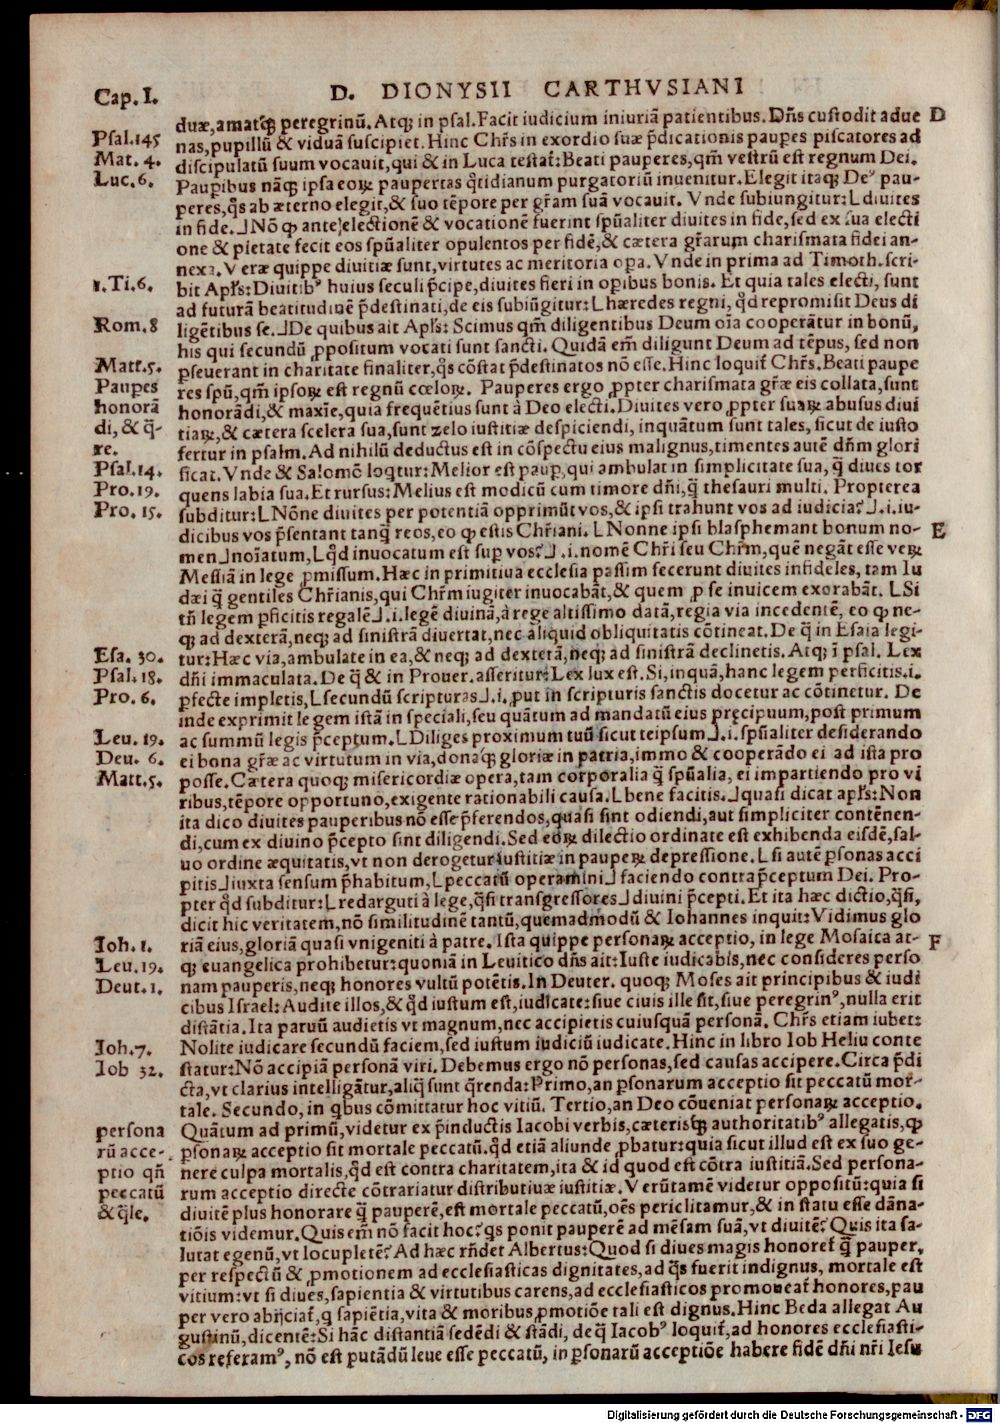 Cap. I. D. DIONYSII CARTHVSIANI
duæ,amatq́; peregrinũ.Atq; in psal.Facit iudicium iniuriã patientibus.Dñs custodit adue D
Psal.145 nas,pupillũ & viduã suscipiet.Hinc Chr̃s in exordio suæ p̃dicationis paupes piscatores ad
Mat. 4. discipulatũ suum vocauit,qui & in Luca testat̃:Beati pauperes,qm̃ vestrũ est regnum Dei.
Luc.6. Paupibus nãq; ipsa eoꝝ paupertas q̃tidianum purgatoriũ inuenitur.Elegit itaq; De⁹ pau-
peres,q̃s ab æterno elegit,& suo tẽpore per gr̃am suã vocauit. Vnde subiungitur:L diuites
in fide.⅃Nõ qp ante electionẽ & vocationẽ fuerint spũaliter diuites in fide,sed ex sua electi
one & pietate fecit eos spũaliter opulentos per fidẽ,& cætera gr̃arum charismata fidei an-
nexa.Veræ quippe diuitiæ sunt,virtutes ac meritoria opa.Vnde in prima ad Timoth.scri-
1.Ti.6. bit Apl̃s:Diuitib⁹ huius seculi p̃cipe,diuites fieri in opibus bonis. Et quia tales electi, sunt
ad futurã beatitudinẽ p̃destinati,de eis subiũgitur:L hæredes regni, q̃d repromisit Deus di
Rom.8 ligẽtibus se.⅃De quibus ait Apl̃s: Scimus qm̃ diligentibus Deum oĩa cooperãtur in bonũ,
his qui secundũ ꝓpositum vocati sunt sancti. Quidã em̃ diligunt Deum ad tẽpus, sed non
Matt.5. pseuerant in charitate finaliter,q̃s cõstat p̃destinatos nõ esse.Hinc loquit̃ Chr̃s.Beati paupe
Paupes res spũ,qm̃ ipsoꝝ est regnũ cœloꝝ. Pauperes ergo ꝓpter charismata gr̃æ eis collata,sunt
honorã honorãdi,& maxĩe,quia frequẽtius sunt à Deo electi.Diuites vero ꝓpter suaꝝ abusus diui
di, & q̃- tiaꝝ,& cætera scelera sua,sunt zelo iustitiæ despiciendi, inquãtum sunt tales, sicut de iusto
re. fertur in psalm.Ad nihilũ deductus est in cõspectu eius malignus,timentes autẽ dñm glori
Psal.14. ficat.Vnde & Salomõ loqtur:Melior est paup,qui ambulat in simplicitate sua, q̃ diues tor
Pro.19. quens labia sua.Et rursus:Melius est modicũ cum timore dñi,q̃ thesauri multi. Propterea
Pro. 15. subditur:L Nõne diuites per potentiã opprimũt vos,& ipsi trahunt vos ad iudicia?⅃.i.iu-
dicibus vos p̃sentant tanq̃ reos,eo qp estis Chr̃iani. L Nonne ipsi blasphemant bonum no- E
men⅃noĩatum,L q̃d inuocatum est sup vos?⅃.i.nomẽ Chr̃i seu Chr̃m,quẽ negãt esse veꝝ
Messiã in lege ꝓmissum.Hæc in primitiua ecclesia passim fecerunt diuites infideles, tam Iu
dæi q̃ gentiles Chr̃ianis,qui Chr̃m iugiter inuocabãt,& quem ꝓ se inuicem exorabãt. L Si
tñ legem pficitis regalẽ⅃.i.legẽ diuinã,à rege altissimo datã,regia via incedentẽ, eo qp ne-
q; ad dexterã,neq; ad sinistrã diuertat,nec aliquid obliquitatis cõtineat.De q̃ in Esaia legi-
Esa. 30. tur:Hæc via,ambulate in ea,& neq; ad dexterã,neq; ad sinistrã declinetis.Atq; ĩ psal. Lex
Psal.18. dñi immaculata.De q̃ & in Prouer.asseritur:Lex lux est.Si,inquã,hanc legem perficitis.i.
Pro. 6. pfecte impletis,L secundũ scripturas⅃.i.put in scripturis sanctis docetur ac cõtinetur. De
inde exprimit legem istã in speciali,seu quãtum ad mandatũ eius pręcipuum,post primum
Leu. 19. ac summũ legis p̃ceptum.L Diliges proximum tuũ sicut teipsum⅃.i.spũaliter desiderando
Deu. 6. ei bona gr̃æ ac virtutum in via,donaq́; gloriæ in patria,immo & cooperãdo ei ad ista pro
Matt.5. posse.Cætera quoq; misericordiæ opera,tam corporalia q̃ spũalia, ei impartiendo pro vi
ribus,tẽpore opportuno,exigente rationabili causa.L bene facitis.⅃quasi dicat apl̃s:Non
ita dico diuites pauperibus nõ esse p̃ferendos,quasi sint odiendi,aut simpliciter contẽnen-
di,cum ex diuino p̃cepto sint diligendi.Sed eoꝝ dilectio ordinate est exhibenda eisdẽ,sal-
uo ordine æquitatis,vt non derogetur iustitiæ in paupeꝝ depressione.L si autẽ psonas acci
pitis⅃iuxta sensum p̃habitum,L peccatũ operamini⅃ faciendo contra p̃ceptum Dei. Pro-
pter q̃d subditur:L redarguti à lege,q̃si transgressores⅃diuini p̃cepti.Et ita hæc dictio,q̃si,
dicit hic veritatem,nõ similitudinẽ tantũ,quemadmodũ & Iohannes inquit:Vidimus glo
Ioh. 1. riã eius,gloriã quasi vnigeniti à patre. Ista quippe personaꝝ acceptio, in lege Mosaica at- F
Leu.19. q; euangelica prohibetur:quoniã in Leuitico dñs ait:Iuste iudicabis,nec consideres perso
Deut.1. nam pauperis,neq; honores vultũ potẽtis.In Deuter. quoq; Moses ait principibus & iudi
cibus Israel:Audite illos,& q̃d iustum est,iudicate:siue ciuis ille sit,siue peregrin⁹,nulla erit
distãtia.Ita paruũ audietis vt magnum,nec accipietis cuiusquã personã. Chr̃s etiam iubet:
Ioh.7. Nolite iudicare secundũ faciem,sed iustum iudiciũ iudicate.Hinc in libro Iob Heliu conte
Iob 32. statur:Nõ accipiã personã viri. Debemus ergo nõ personas,sed causas accipere.Circa p̃di
cta,vt clarius intelligãtur,aliq̃ sunt q̃renda:Primo,an psonarum acceptio sit peccatũ mor-
tale. Secundo, in qbus cõmittatur hoc vitiũ. Tertio,an Deo cõueniat personaꝝ acceptio.
persona Quãtum ad primũ,videtur ex p̃inductis Iacobi verbis,cæterisq́; authoritatib⁹ allegatis,qp
rũ acce- psonaꝝ acceptio sit mortale peccatũ.q̃d etiã aliunde ꝓbatur:quia sicut illud est ex suo ge-
ptio qñ nere culpa mortalis,q̃d est contra charitatem,ita & id quod est cõtra iustitiã.Sed persona-
peccatũ rum acceptio directe cõtrariatur distributiuæ iustitiæ. Verũtamẽ videtur oppositũ:quia si
& q̃le. diuitẽ plus honorare q̃ pauperẽ,est mortale peccatũ,oẽs periclitamur,& in statu esse dãna-
tiõis videmur.Quis em̃ nõ facit hoc?qs ponit pauperẽ ad mẽsam suã,vt diuitẽ?Quis ita sa-
lutat egenũ,vt locupletẽ?Ad hæc rñdet Albertus:Quod si diues magis honoret̃ q̃ pauper,
per respectũ & ꝓmotionem ad ecclesiasticas dignitates,ad q̃s fuerit indignus, mortale est
vitium:vt si diues,sapientia & virtutibus carens,ad ecclesiasticos promoueat̃ honores,pau
per vero abijciat̃,q sapiẽtia,vita & moribus,ꝓmotiõe tali est dignus.Hinc Beda allegat Au
gustinũ,dicentẽ:Si hãc distantiã sedẽdi & stãdi, de q̃ Iacob⁹ loquit̃,ad honores ecclesiasti-
cos referam⁹, nõ est putãdũ leue esse peccatũ, in psonarũ acceptiõe habere fidẽ dñi nr̃i Iesu
Digitalisierung gefördert durch die Deutsche Forschungsgemeinschaft - DFG